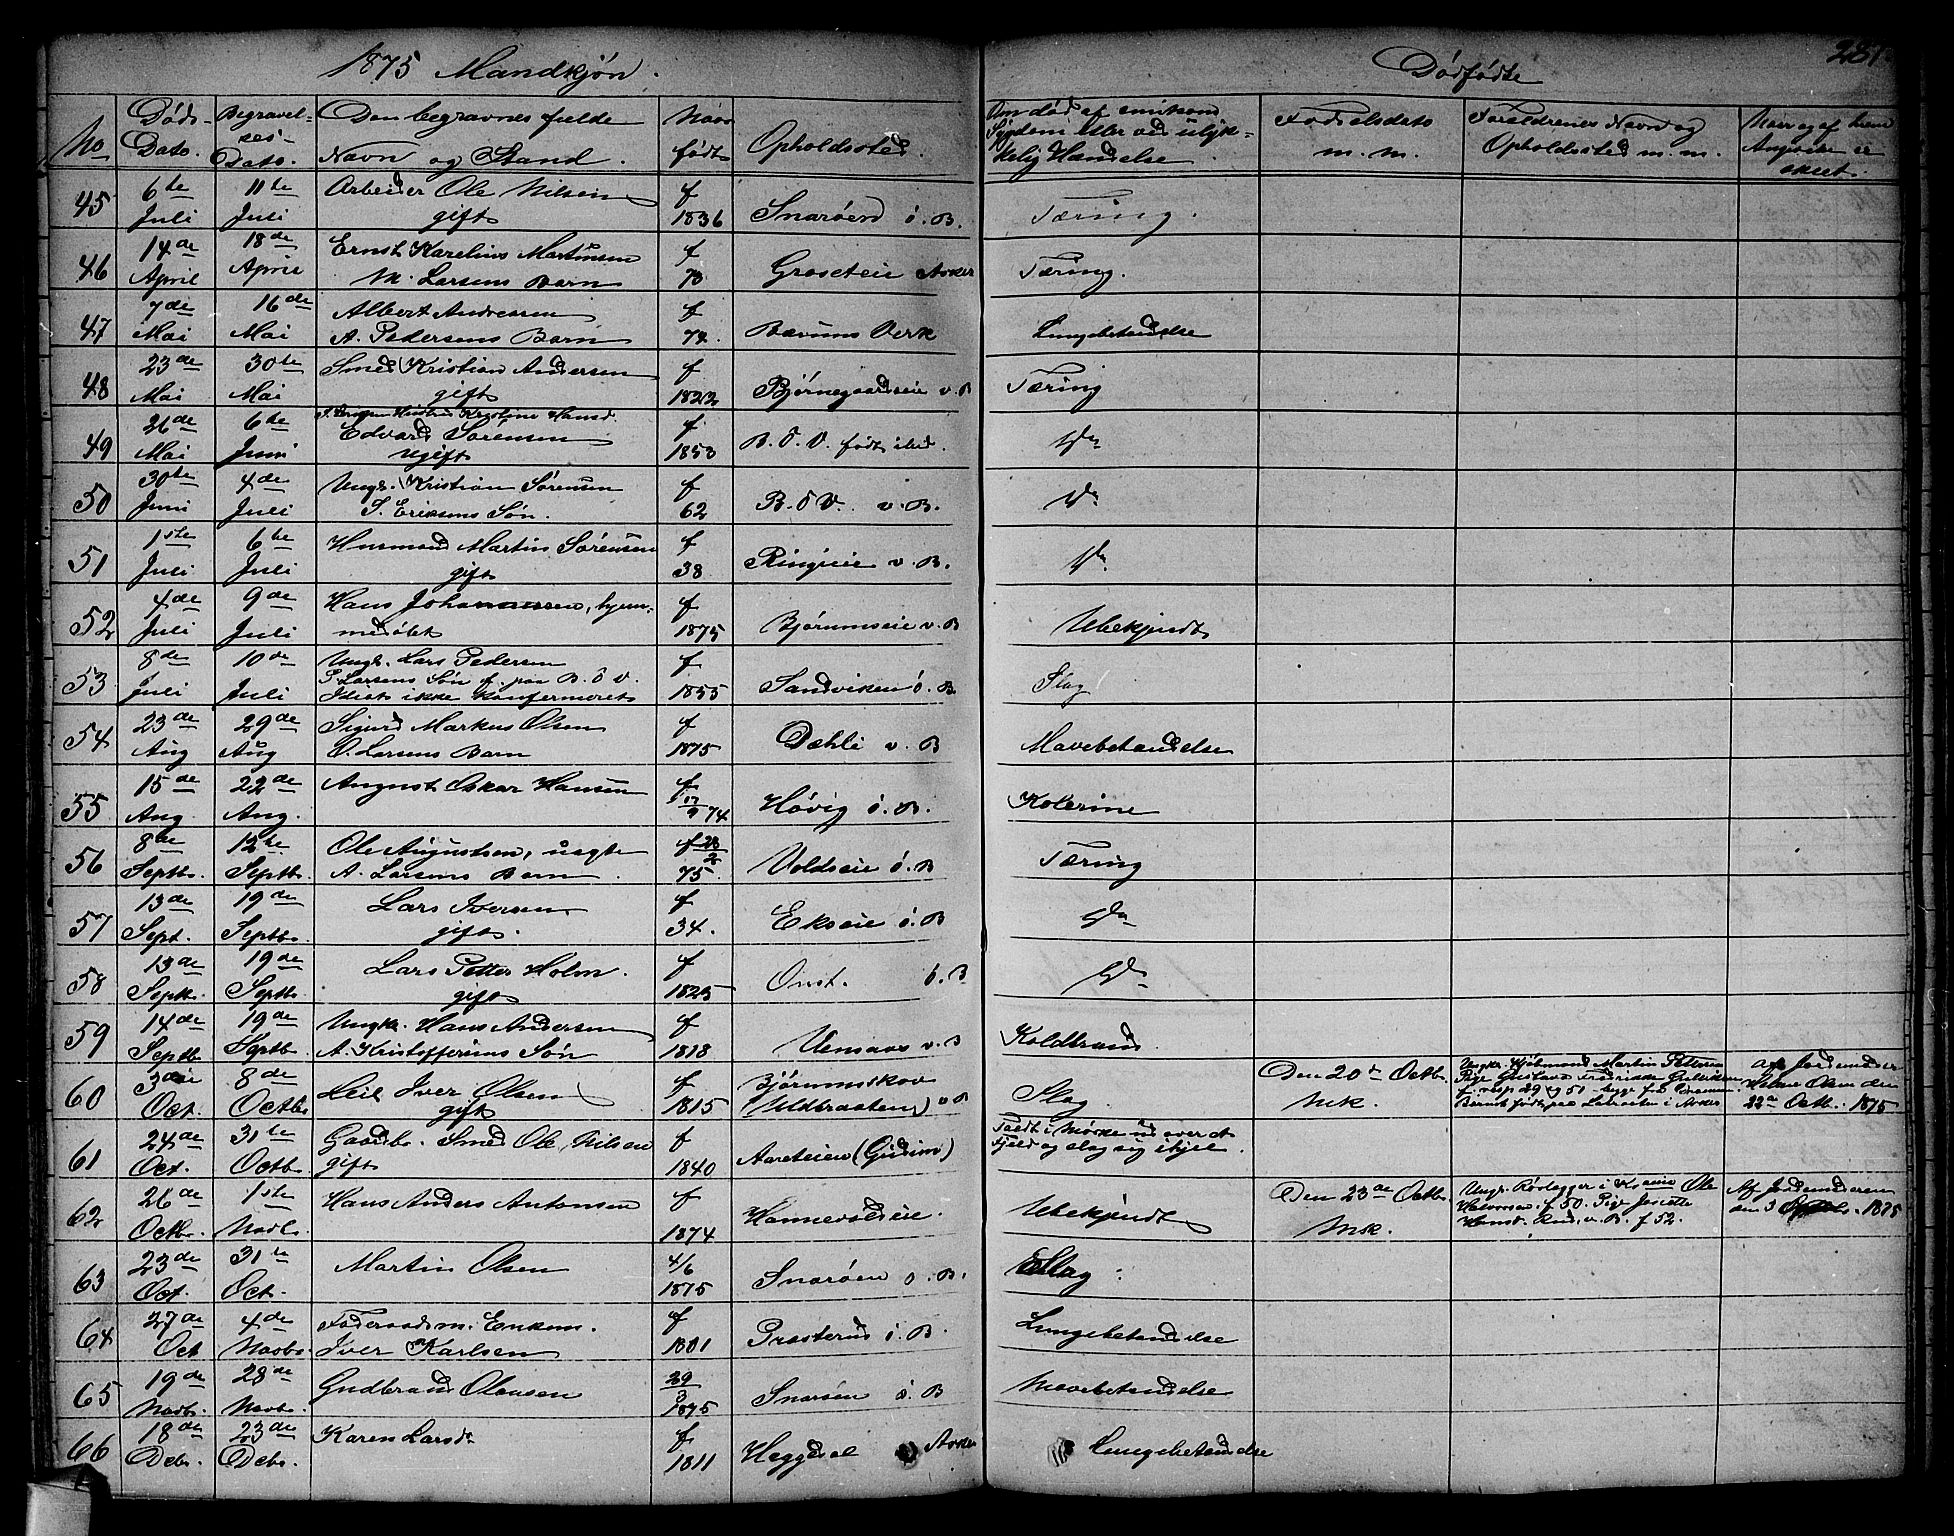 1875 Mandkjøn.
Dødfødte
No
Døds-
Dato.
Begravel-
ses-
Dato.
Den begravnes fulde
Navn og Stand.
Naar
født
Opholdssted.
Om død af
Sygdom eller ved ulyk-
kelig Hændelse
Fødselsdato
m. m.
Forældrenes Navn og
Opholdssted m. m.
45 6te Juli 11te Juli Arbeider Ole Nilsen f
gift 1836 Snarøen ö. B. Tæring.
46 14de April 18de April Ernst Karelius Martinsen f
M. Larsens Barn 73 Groseteie Asker Tæring.
47 7de Mai 16de Mai Albert Andressen f
A. Pedersens Barn 74. Bærums Verk Lungebetændelse
48 23de Mai 30te Mai Smed Kristian Andersen f
gift 1822 Bjørnegaardseie v. B Tæring
49 26de Mai 6te Juni Kristine Hansd.
Edvard Sørensen f
ugift 1853 B. Ö. V. født ibid. Do
50 30te Juni 4de Juli Ungk. Kristian Sørensen f
S. Eriksens Søn. 62 B. Ö V. v. B. Do
51 1ste Juli 6te Juli Husmand Martin Sørensen f
gift 38 Ringieie v. B. Do
52 4de Juli 9de Juli Hans Johannessen, hjem-
medøbt f 1875 Bjørumseie v. B Ubekjendt
53 8de Juli 10de Juli Ungk. Lars Pedersen f
P. Larsens Søn f. paa B. Ö V.
Idiot ikke konfermeret 1855 Sandviken ö. B. Slag
54 23de Aug 29de Aug Sigurd Markus Olsen f
O. Larsens Barn 1875 Dæhli v. B Mavebetændelse
55 15de Aug. 22de Aug. August Oskar Hansen f
74 Høvig ö. B. Kolerine
56 8de Septb. 12te Septb. Ole Augustsen, uægte f 23/2
A. Larsens Barn. 75. Voldseie ö. B Tæring
57 13de Sept. 19de Septb. Lars Iversen f
gift. 34. Ekseie ö. B Do
58 13de Septb. 19de Septb. Lars Petter Holm. f
gift 1825 Onst. ö. B Do
59 14de Septb 19de Septb. Ungk. Hans Andersen f
A. Kristoffersens Søn 1818 Vensaas v. B Koldbrand.
60 3die Oct. 8de Octb. Leil. Iver Olsen f
gift 1815 Bjørumskov
(Veldbraaten) v B Slag.
Den 20de Octb.
Mk.
Ungk. Husmand Martin Petersen
Pige Gustava Fredrikke Gulliksen
Barnet født paa Labraaten i Asker
af Jordemoder
Helene Olsen den
22de Octb. 1875
61 24de Oct. 31te Octb. Gaardb. Smed Ole Nilsen f
gift 1840 Aareteien (Gudim) Faldt i Mørke ud over et
Fjeld og slog sig ihjel.
62 26de Octb. 1ste Novb. Hans Anders Antonsen f
1874 Hannevoldeie. Ubekjendt
Den 23de Octb.
Mk.
Ungk. Rørlegger i Ole
Halvorsen f 50. Pige Josette
Hansd. Rud. v. B. f 52.
Af Jordemoderen
den 3 1875
63 23de Oct. 31te Oct. Martin Olsen 4/6
1875 Snarøen ö. B. Slag.
64 27de Oct 4de Novb. Føderaadsm. Enkem. f
Iver Karlsen 1801 Presterud ö. B. Lungebetændelse
65 19de Novb. 28de Novb. Gudbrand Olausen 29/3
1875 Snarøen ö. B Mavebetændelse
66 18de Debr. 23de Debr. Karen Larsd. f
1811 Heggedal Asker Lungebetændelse